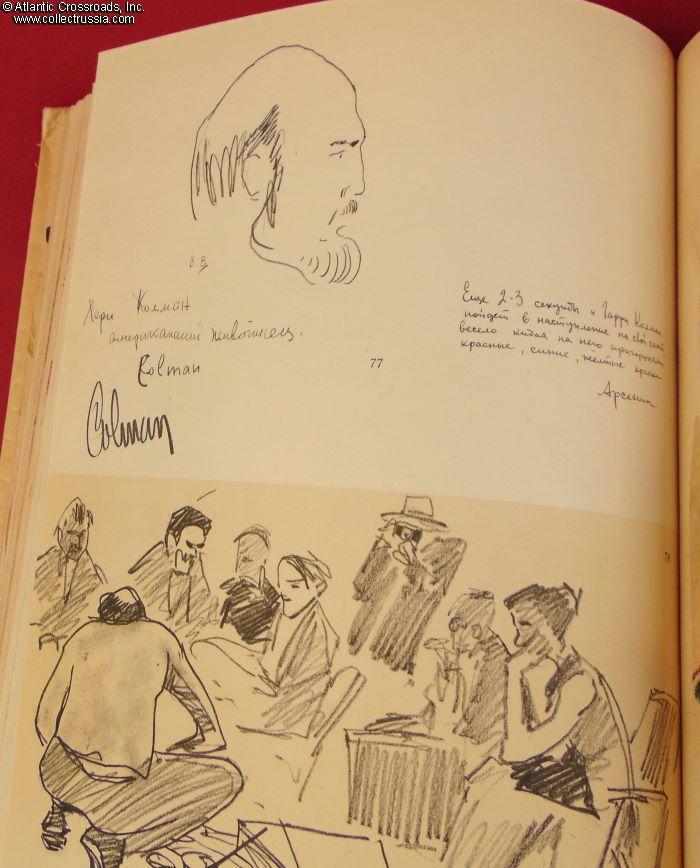 © Atlantic Crossroads, Inc.
www.collectrussia.com
В.В.
Хери Колман
американский живописец.
Colman
77
Colman
Еще 2-3 секунды и Гарри Колман
пойдет в наступление на свой холст
весело кидая на него пригоршнями
красные, синие, желтые краски
Арсении
78